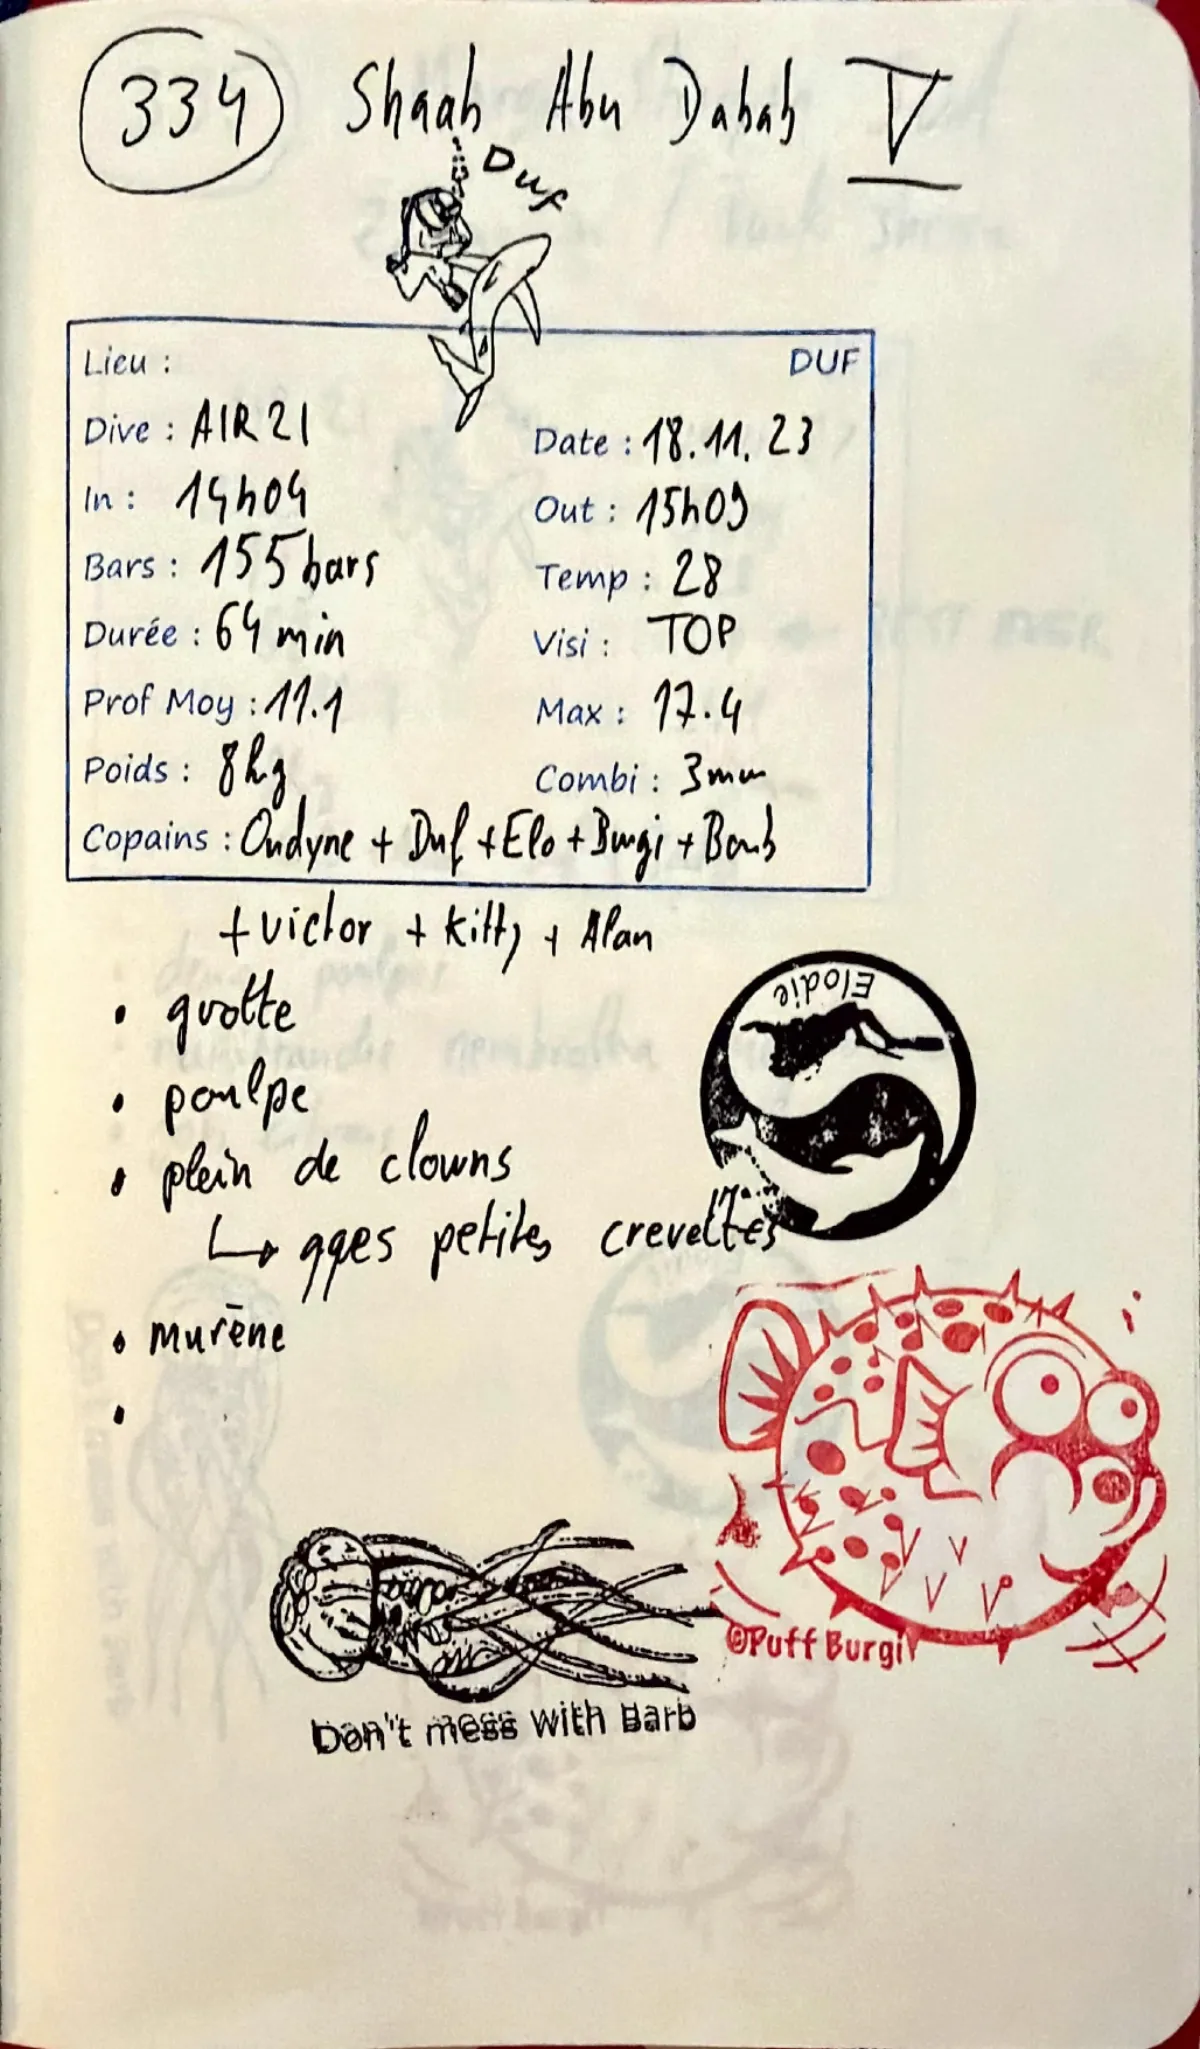 334 Shaab Abu Dabab V
Duf
Lieu : DUF
Dive : AIR 21 Date : 18.11.23
In : 14h04 Out : 15h09
Bars : 155 bars Temp : 28
Durée : 64 min Visi : TOP
Prof Moy : 11.1 Max : 17.4
Poids : 8kg Combi : 3mm
Copains : Ondyne + Duf + Elo + Burgi + Barb
+ Victor + Kitty + Alan
• grotte
Elodie
• poulpe
• plein de clowns
↳ qqes petites crevettes
• murène
•
©Puff Burgi
Don't mess with Barb